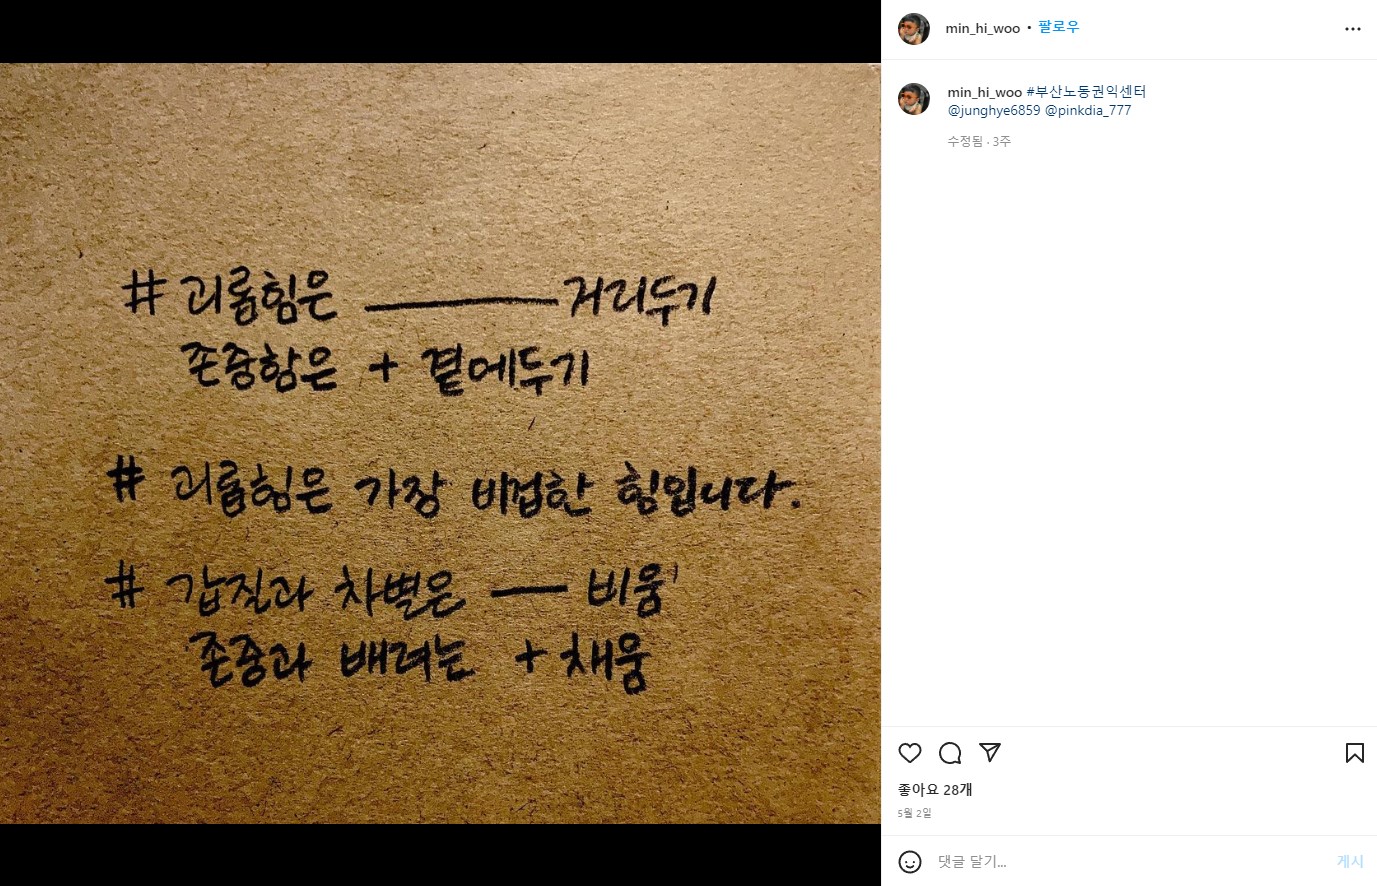 # 괴롭힘은 ——— 거리두기
존중함은 + 곁에두기
# 괴롭힘은 가장 비겁한 힘입니다.
# 갑질과 차별은 — 비움
존중과 배려는 + 채움
min_hi_woo • 팔로우
min_hi_woo #부산노동권익센터
@junghye6859 @pinkdia_777
수정됨 · 3주
좋아요 28개
5월 2일
댓글 달기...
게시